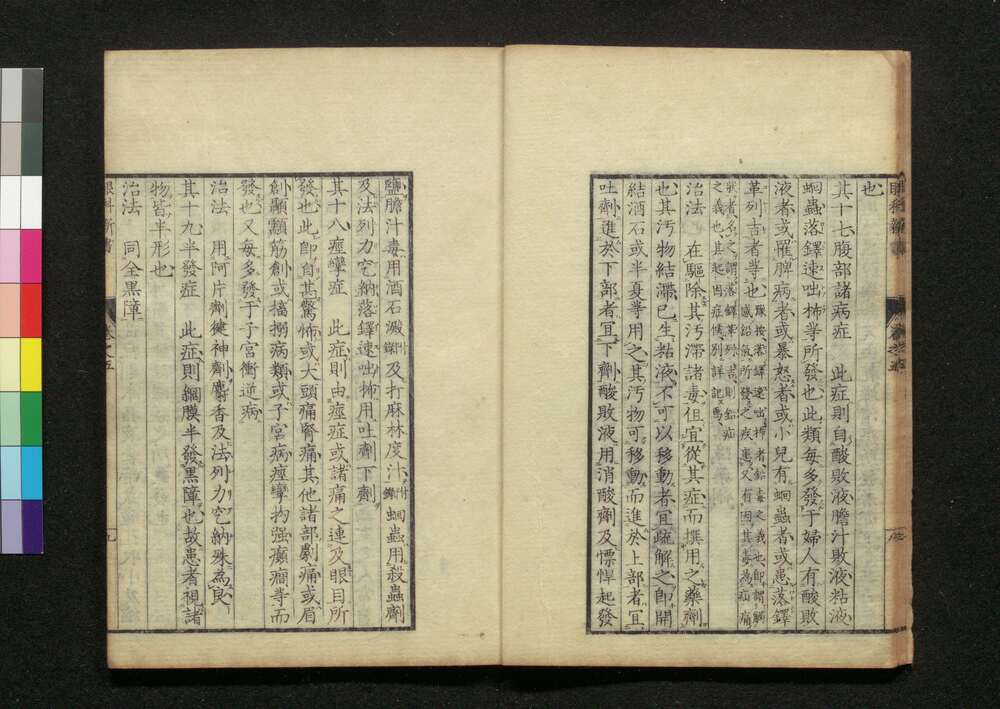 也
其十七腹部諸病症　此症則自酸敗液膽汁敗液粘液
蛔蟲落鐸速咄柿等所發也此類每多發于婦人有酸敗
液者或罹脾病者或暴怒者或小兒有蛔蟲者或患落鐸
革列吉者等也
治法　在驅除其汚滯諸毒但宜從其症而撰用之藥劑
也其汚物結滯已生粘液不可以移動者宜疏解之即開
結酒石或半夏等用之其汚物可移動而進於上部者宜
吐劑進於下部者宜下劑酸敗液用消酸劑及慓悍起發
鹽膽汁毒用酒石澱及打麻林度汁蛔蟲用殺蟲劑
及法列力究納落鐸速咄柿用吐劑下劑
其十八痙攣症　此症則由痙症或諸痛之連及眼目所
發也此即自其驚怖或大頭痛腎痛其他諸部劇痛或眉
創顳顬筋創或搐搦病類或子宮病痙攣拘强癲癇等而
發也又每多發于子宮衝逆病
治法　用阿片劑健神劑麝香及法列力究納殊爲良
其十九半發症　此症則網膜半發黑障也故患者視諸
物皆半形也
治法　同全黑障
眼科新書
卷之五
九